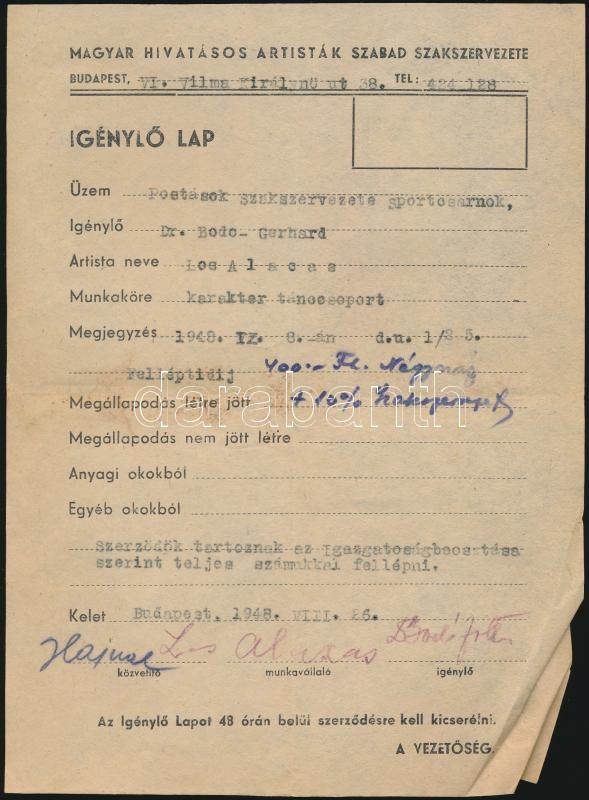 MAGYAR HIVATÁSOS ARTISTÁK SZABAD SZAKSZERVEZETE
BUDAPEST, VI. Vilma Királynö ut 38. TEL: 424 128
IGÉNYLŐ LAP
Üzem Postások szakszervezete sportcsarnok,
Igénylő Dr. Bodo- Gerhard
Artista neve Los A l a c a s
Munkaköre karakter tánccsoport
Megjegyzés 1948. IX. 8.-án d.u. 1/2 5.
Felléptidij 400.- Ft.
Megállapodás létre jött + 10%
Megállapodás nem jött létre
Anyagi okokból
Egyéb okokból
Szerzödök tartoznak az igazgatoságbeosztása
szerint teljes számukkal fellépni.
Kelet Budapest, 1948. VIII. 26.
Los
közvetitő munkavállaló igénylő
Az Igénylő Lapot 48 órán belül szerződésre kell kicserélni.
A VEZETŐSÉG.
darabanth